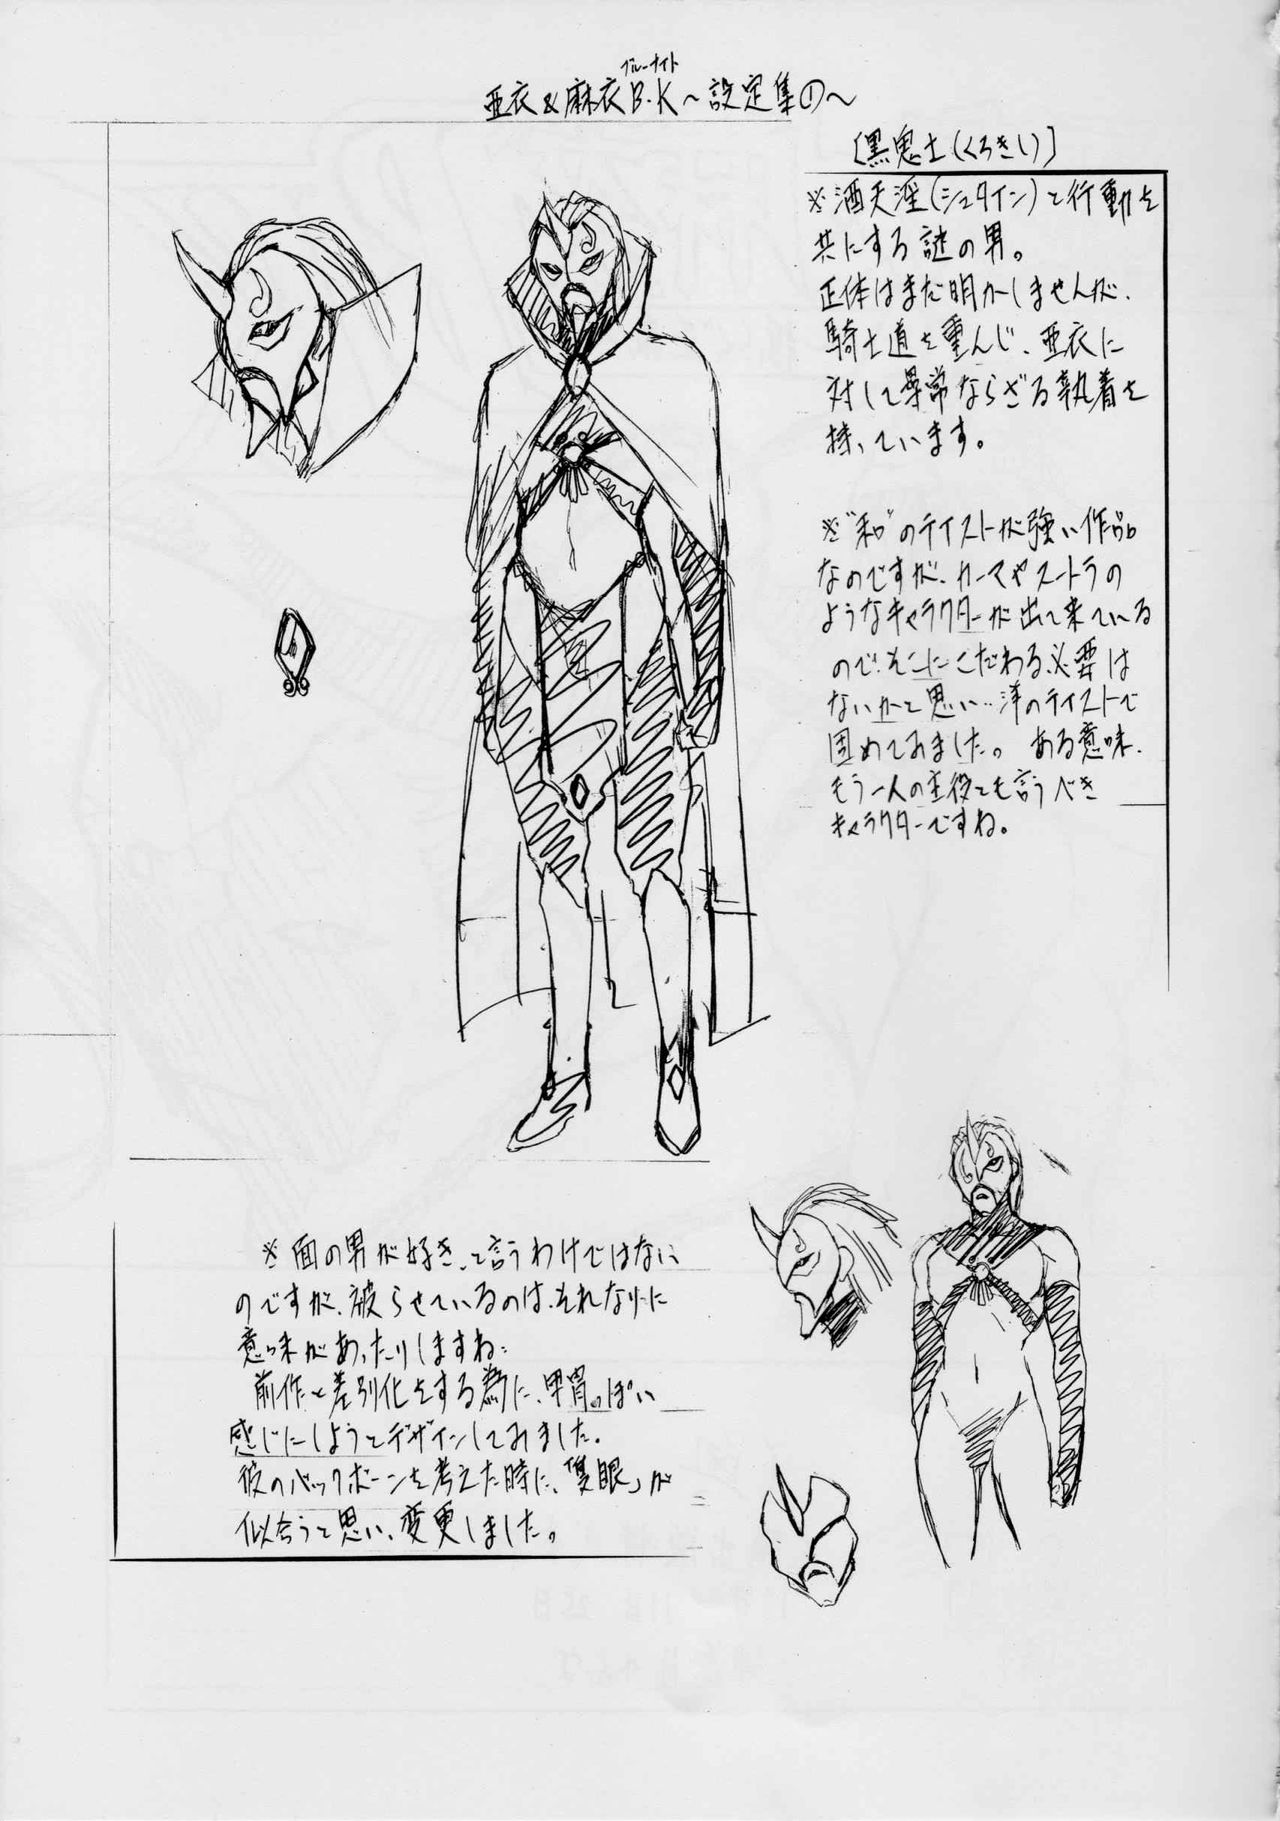 ブルーナイト
亜衣&麻衣B.K〜設定集の〜
[黒鬼士(くろきし)]
※酒天淫(シュタイン)と行動を
共にする謎の男。
正体はまだ明かしませんが、
騎士道を重んじ、亜衣に
対して尋常ならざる執着を
持っています。
※"和"のテイストが強い作品
なのですが、カーマやスートラの
ようなキャラクターが出て来ている
ので、そこにこだわる必要は
ないかと思い…洋のテイストで
固めてみました。ある意味、
もう一人の主役とも言うべき
キャラクターですね。
※面の男が好き、と言うわけではない
のですが、被らせているのは、それなりに
意味があったりしますね…
前作と差別化をする為に、甲冑っぽい
感じにしようとデザインしてみました。
彼のバックボーンを考えた時に、「隻眼」が
似合うと思い、変更しました。